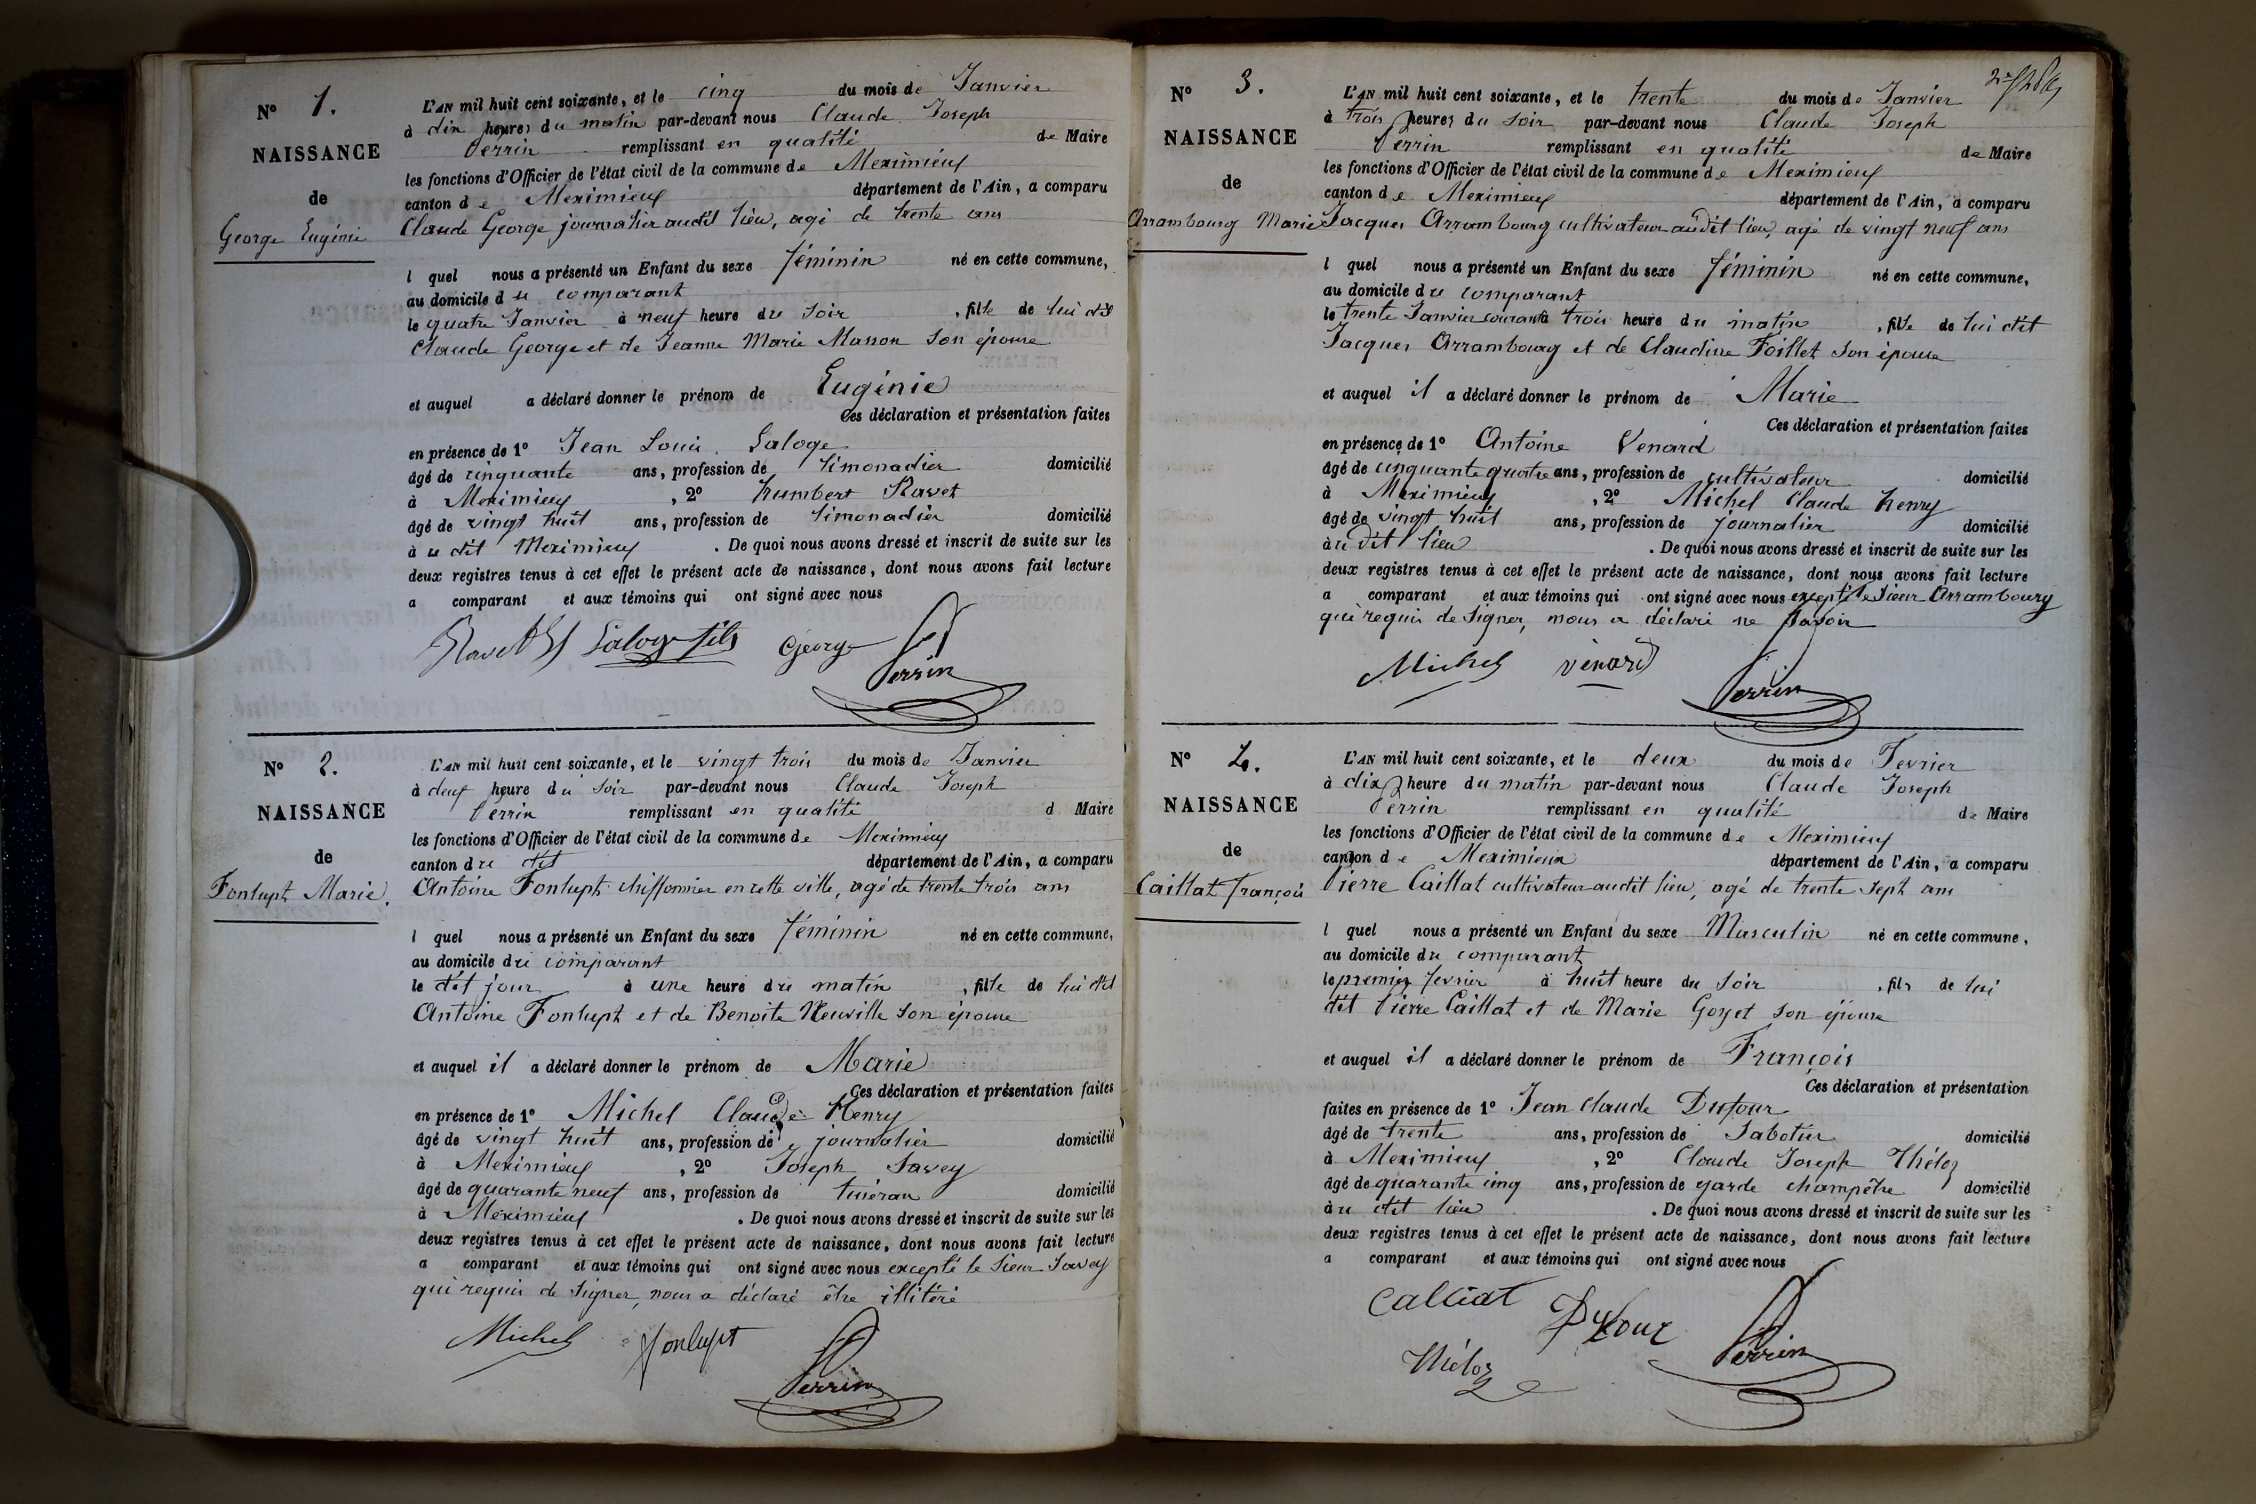 N° 1.
NAISSANCE
de
George Eugénie
L'AN mil huit cent soixante, et le cinq du mois de Janvier
à dix heures du matin par-devant nous Claude Joseph
Perrin remplissant en qualité de Maire
les fonctions d'Officier de l'état civil de la commune de Meximieux
canton de Meximieux département de l'Ain, a comparu
Claude George journalier audit lieu, agé de trente ans
l quel nous a présenté un Enfant du sexe féminin né en cette commune,
au domicile du comparant
le quatre Janvier à neuf heure du soir, fille de lui dit
Claude George et de Jeanne Marie Masson son épouse
et auquel a déclaré donner le prénom de Eugénie
Ces déclaration et présentation faites
en présence de 1° Jean Louis Laloge
âgé de cinquante ans, profession de limonadier domicilié
à Meximieux, 2° humbert Ravet
âgé de vingt huit ans, profession de limonadier domicilié
à u dit Meximieux. De quoi nous avons dressé et inscrit de suite sur les
deux registres tenus à cet effet le présent acte de naissance, dont nous avons fait lecture
a comparant et aux témoins qui ont signé avec nous
Ravet Laloge fils George
Perrin
N° 2.
NAISSANCE
de
Fonlupt Marie.
L'AN mil huit cent soixante, et le vingt trois du mois de Janvier
à deux heure du soir par-devant nous Claude Joseph
Perrin remplissant en qualité d Maire
les fonctions d'Officier de l'état civil de la commune de Meximieux
canton du dit département de l'Ain, a comparu
Antoine Fonlupt chiffonnier en cette ville, agé de trente trois ans
l quel nous a présenté un Enfant du sexe féminin né en cette commune,
au domicile du comparant
le dit jour à une heure du matin, fille de lui dit
Antoine Fonlupt et de Benoite Neuville son épouse
et auquel il a déclaré donner le prénom de Marie
Ces déclaration et présentation faites
en présence de 1° Michel Claude Henry
âgé de vingt huit ans, profession de journalier domicilié
à Meximieux, 2° Joseph Savey
âgé de quarante neuf ans, profession de domicilié
à Meximieux. De quoi nous avons dressé et inscrit de suite sur les
deux registres tenus à cet effet le présent acte de naissance, dont nous avons fait lecture
a comparant et aux témoins qui ont signé avec nous excepté le sieur Savey
qui requis de signer, nous a déclaré être illitéré
Michel fonlupt
Perrin
N° 3.
NAISSANCE
de
Arrambourg Marie
L'AN mil huit cent soixante, et le trente du mois de Janvier
à trois heures du soir par-devant nous Claude Joseph
Perrin remplissant en qualité de Maire
les fonctions d'Officier de l'état civil de la commune de Meximieux
canton de Meximieux département de l'Ain, a comparu
Jacques Arrambourg cultivateur au dit lieu, agé de vingt neuf ans
l quel nous a présenté un Enfant du sexe féminin né en cette commune,
au domicile du comparant
le trente Janvier courant à trois heure du matin, fille de lui dit
Jacques Arrambourg et de Claudine Foillet son épouse
et auquel il a déclaré donner le prénom de Marie
Ces déclaration et présentation faites
en présence de 1° Antoine Venard
âgé de cinquante quatre ans, profession de cultivateur domicilié
à Meximieux, 2° Michel Claude henry
âgé de vingt huit ans, profession de journalier domicilié
àu dit lieu. De quoi nous avons dressé et inscrit de suite sur les
deux registres tenus à cet effet le présent acte de naissance, dont nous avons fait lecture
a comparant et aux témoins qui ont signé avec nous excepté le sieur Arrambourg
qui requis de signer, nous a déclaré ne savoir
Michel venard
Perrin
N° 4.
NAISSANCE
de
Caillat françois
L'AN mil huit cent soixante, et le deux du mois de Fevrier
à dix heure du matin par-devant nous Claude Joseph
Perrin remplissant en qualité de Maire
les fonctions d'Officier de l'état civil de la commune de Meximieux
canton de Meximieux département de l'Ain, a comparu
Pierre Caillat cultivateur audit lieu, agé de trente sept ans
l quel nous a présenté un Enfant du sexe Masculin né en cette commune,
au domicile du comparant
le premier fevrier à huit heure du soir, fils de lui
dit Pierre Caillat et de Marie Goyet son épouse
et auquel il a déclaré donner le prénom de François
Ces déclaration et présentation
faites en présence de 1° Jean Claude Dufour
âgé de trente ans, profession de Sabotier domicilié
à Meximieux, 2° Claude Joseph Théloz
âgé de quarante cinq ans, profession de garde champêtre domicilié
àu dit lieu. De quoi nous avons dressé et inscrit de suite sur les
deux registres tenus à cet effet le présent acte de naissance, dont nous avons fait lecture
a comparant et aux témoins qui ont signé avec nous
Calliat Dufour
Théloz Perrin